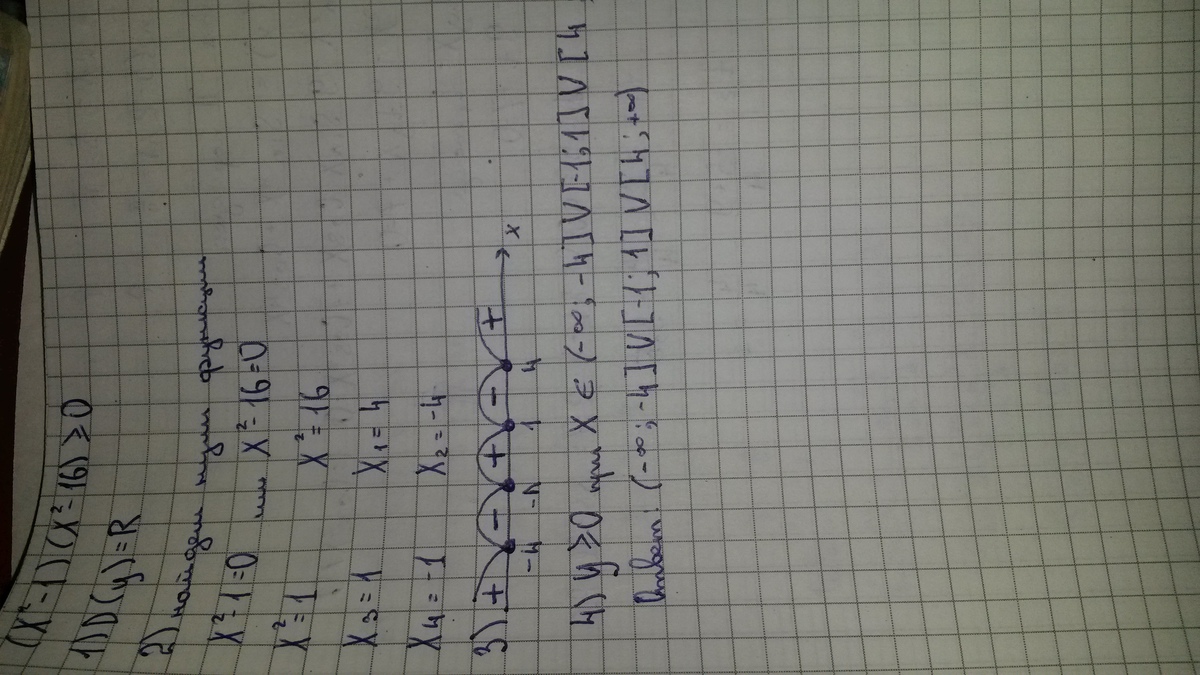 (x²-1)(x²-16)≥0
1) D(y)=R
2) найдем нули функции
x²-1=0 или x²-16=0
x²=1 x²=16
x₃=1 x₁=4
x₄=-1 x₂=-4
3) + - + - + x
-4 -1 1 4
4) y≥0 при x∈(-∞;-4]V[-1;1]V[4
Ответ: (-∞;-4]V[-1;1]V[4;+∞)